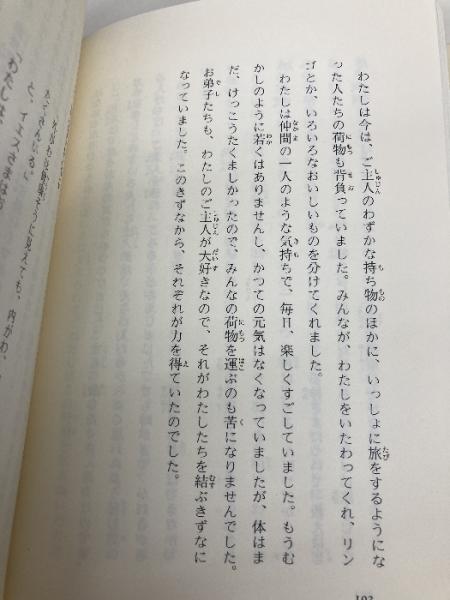 わたしは今は、ご主人のわずかな持ち物のほかに、いっしょに旅をするようにな
った人たちの荷物も背負っていました。みんなが、わたしをいたわってくれ、リン
ゴとか、いろいろなおいしいものを分けてくれました。
わたしは仲間の一人のような気持ちで、毎日、楽しくすごしていました。もうむ
かしのように若くはありませんし、かつての元気はなくなっていましたが、体はま
だ、けっこうたくましかったので、みんなの荷物を運ぶのも苦になりませんでした。
お弟子たちも、わたしのご主人が大好きなので、それがわたしたちを結ぶきずなに
なっていました。このきずなから、それぞれが力を得ていたのでした。
103
「わたしは、
と、イエスさまは
見えても、内がわ